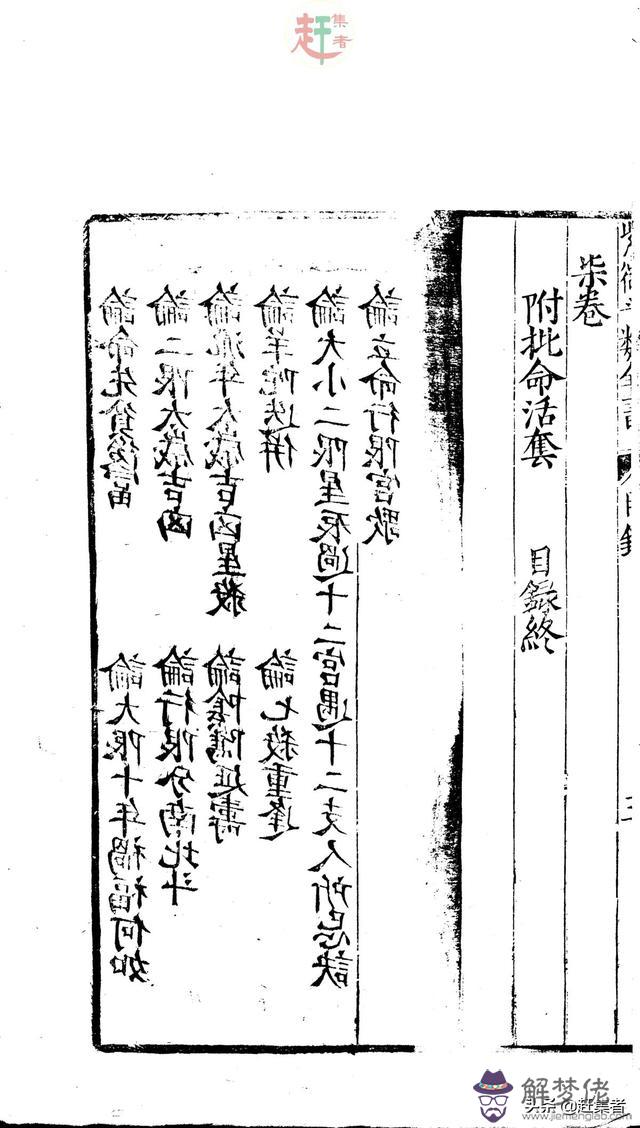 赶集者
柒卷
附批命活套 目録終
論命先貧後富 論大限十年禍福何如
論二限太歲吉凶 論行限分南北斗
論流年太歲吉凶星殺 論陰騭延壽
論羊陀迭併 論七殺重逢
論大小二限星辰過十二宮遇十二支人所忌訣
論立命行限宮歌
解梦佬
www.jiemenglab.com
头条@赶集者